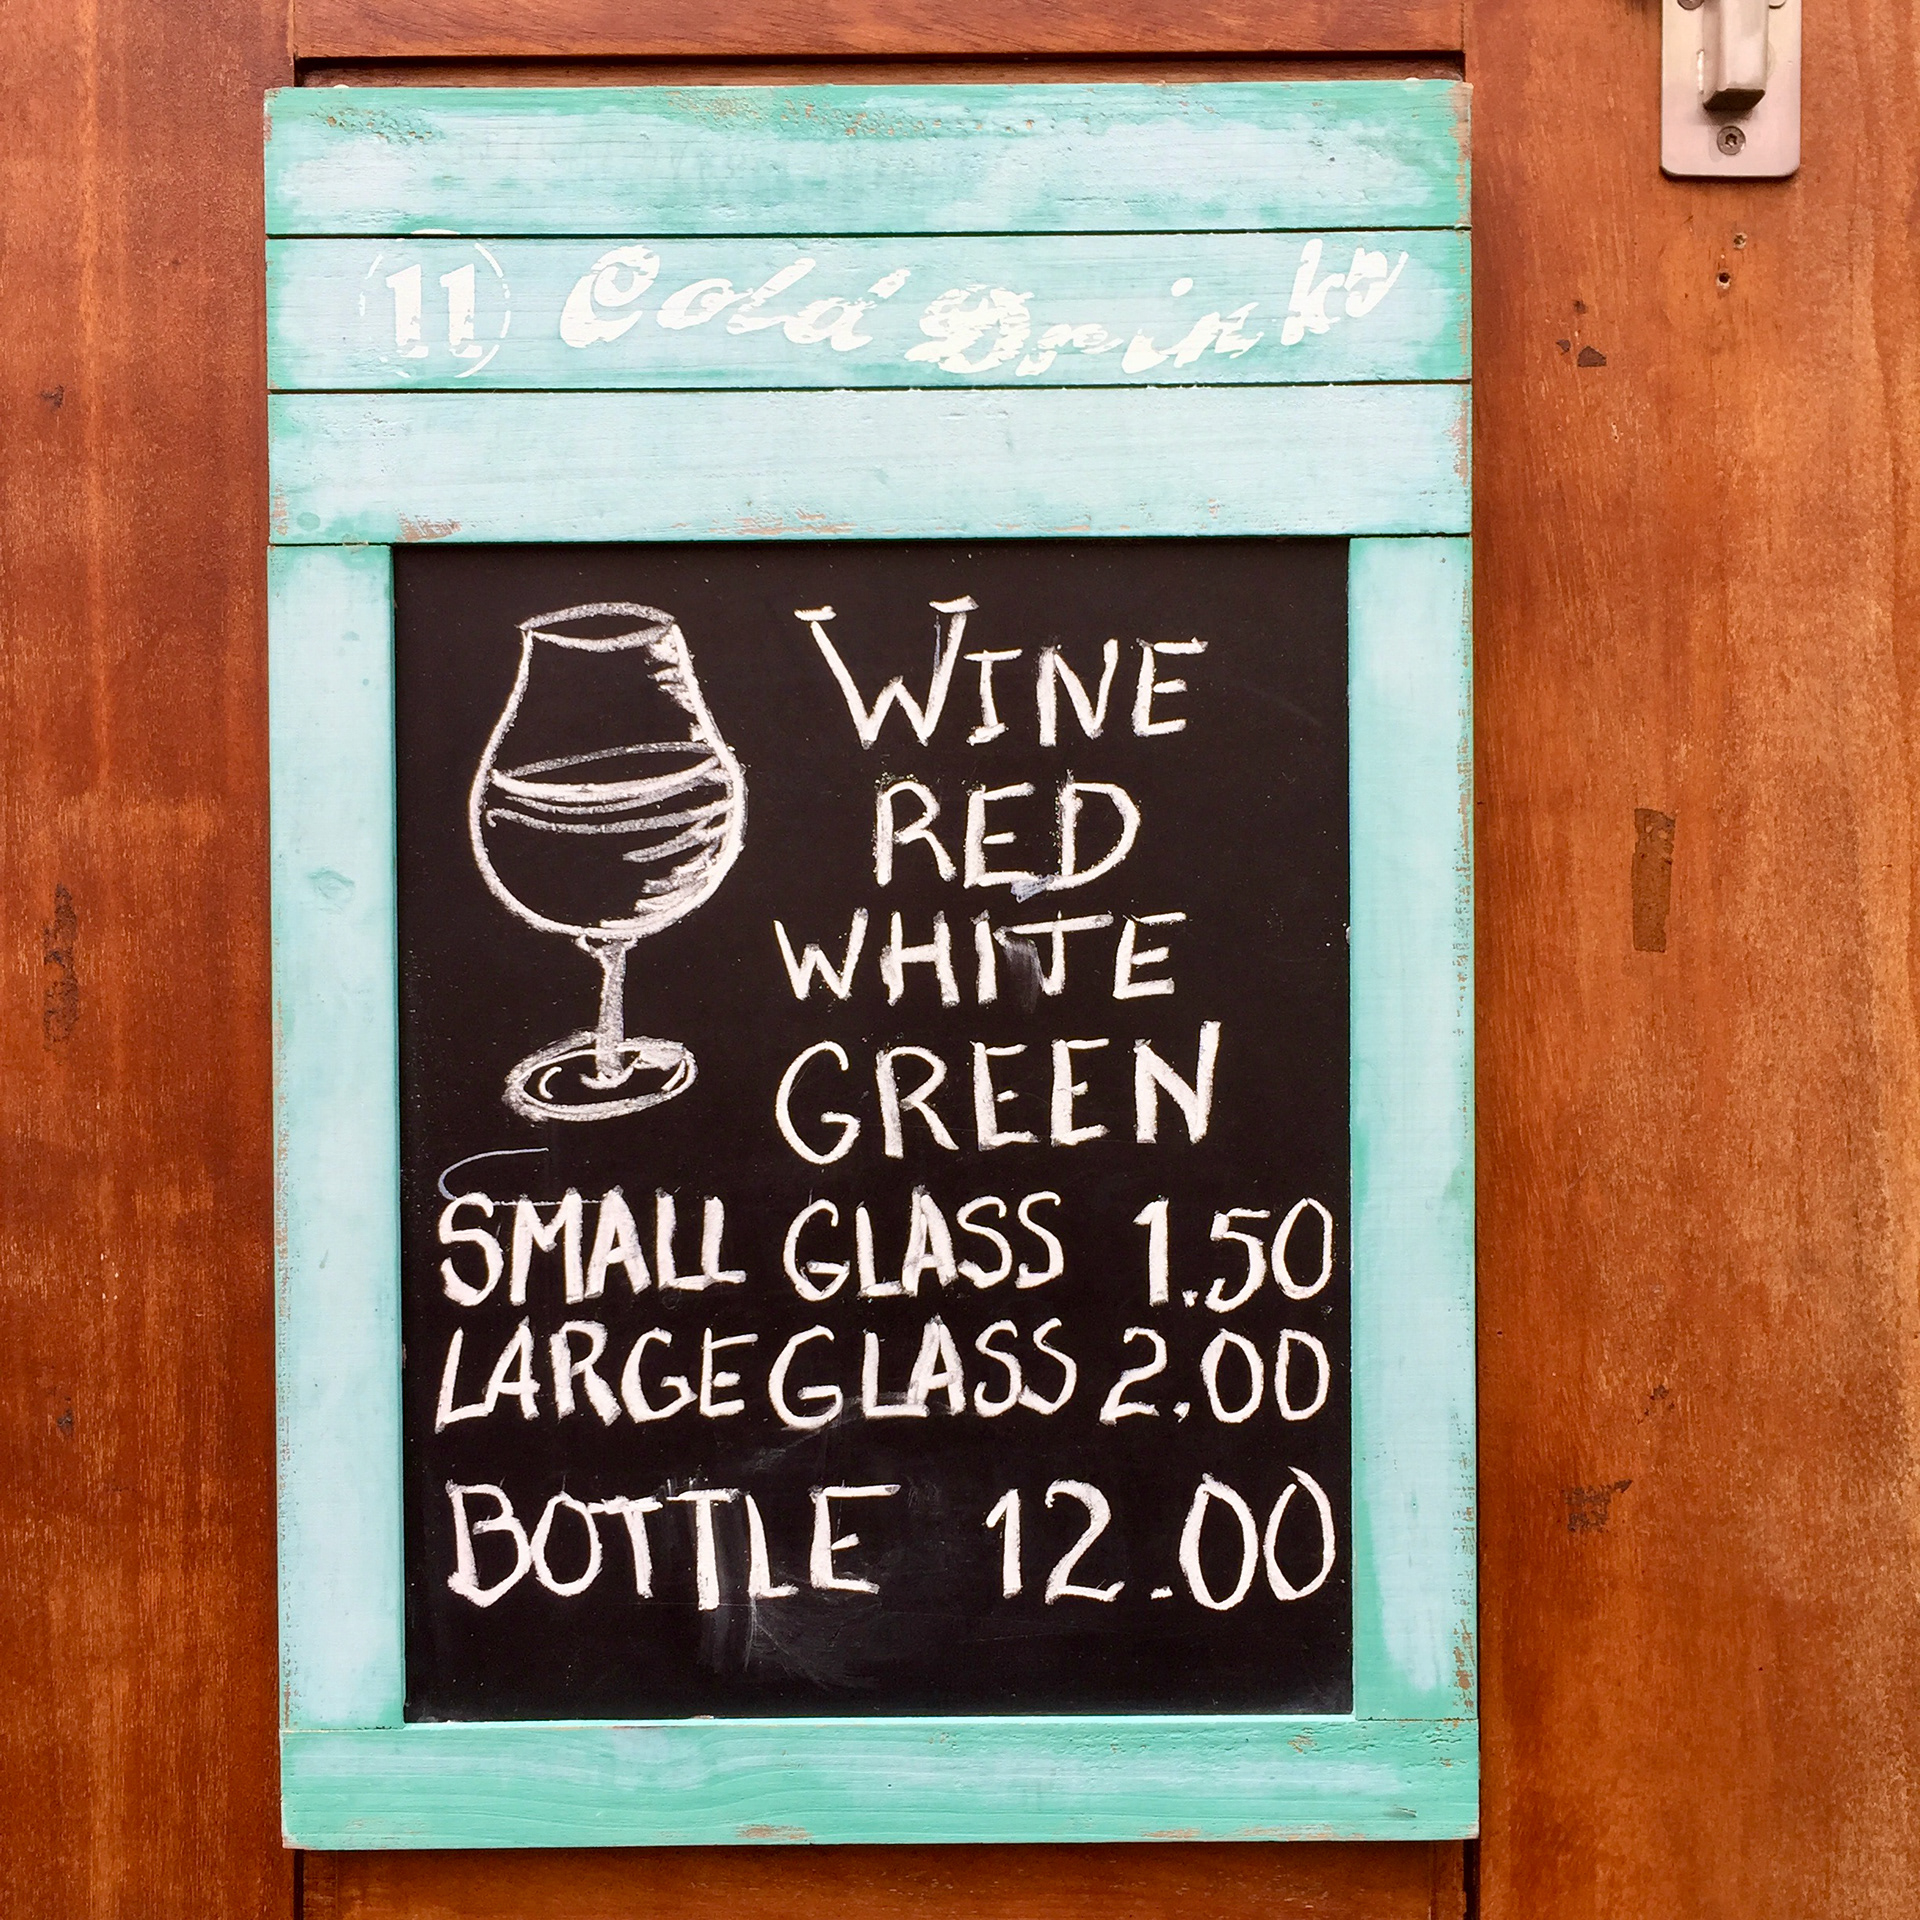 11 Cold Drinks
WINE
RED
WHITE
GREEN
SMALL GLASS 1.50
LARGE GLASS 2.00
BOTTLE 12.00